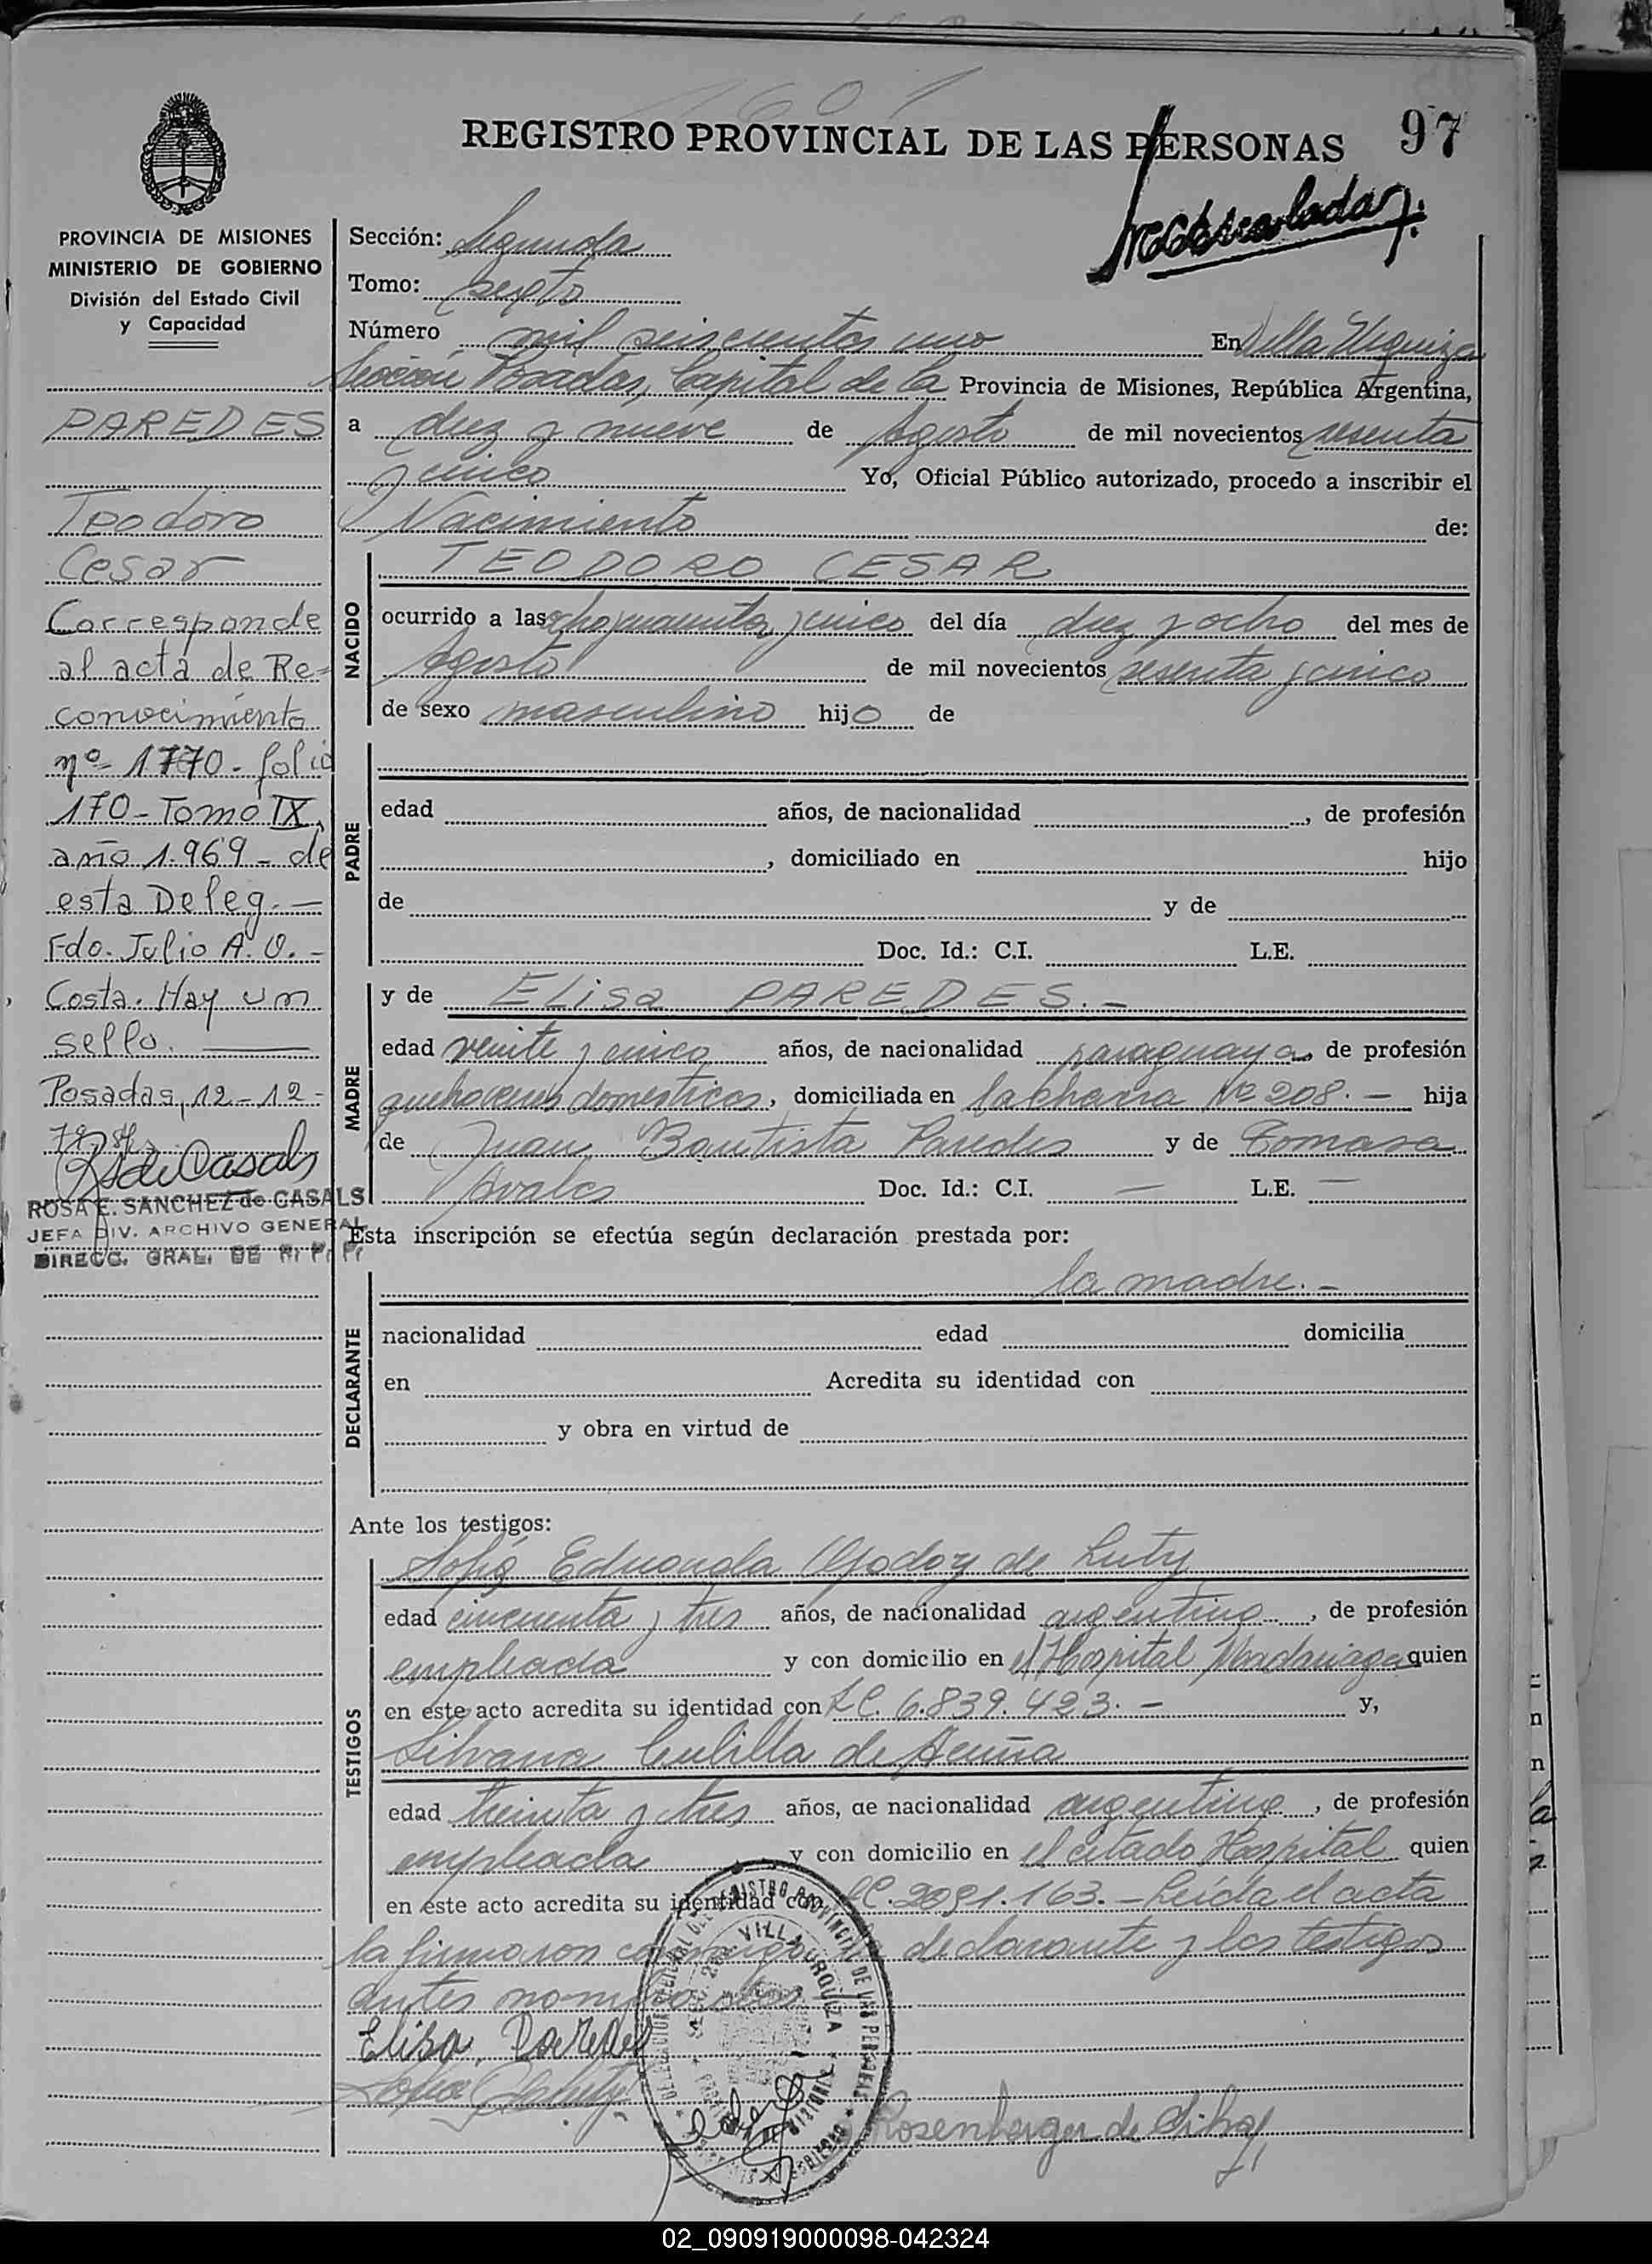 REGISTRO PROVINCIAL DE LAS PERSONAS 97
PROVINCIA DE MISIONES
MINISTERIO DE GOBIERNO
División del Estado Civil
y Capacidad
PAREDES
Teodoro
Cesar
Corresponde
al acta de Re-
conocimiento
nº 1770 - folio
170 - Tomo IX,
año 1.969 - de
esta Deleg. —
Fdo. Julio A. O. -
Costa. Hay un
sello. —
Posadas, 12-12-
ROSA E. SANCHEZ de CASALS
JEFA DIV. ARCHIVO GENERAL
DIRECC. GRAL. DE R. P. P.
Sección: Segunda
Tomo: sexto
Número mil seiscientos uno En Villa Urquiza
Sección Posadas, Capital de la Provincia de Misiones, República Argentina,
a diez y nueve de Agosto de mil novecientos sesenta
y cinco Yo, Oficial Público autorizado, procedo a inscribir el
Nacimiento de:
NACIDO
TEODORO CESAR
ocurrido a las ocho y cuarenta y cinco del día diez y ocho del mes de
Agosto de mil novecientos sesenta y cinco
de sexo masculino hijo de
PADRE
edad años, de nacionalidad , de profesión
, domiciliado en hijo
de y de
Doc. Id.: C.I. L.E.
MADRE
y de Elisa PAREDES.-
edad veinte y cinco años, de nacionalidad paraguaya, de profesión
quehaceres domesticos, domiciliada en la chacra Nº 208. - hija
de Juan Bautista Paredes y de Tomasa
Avalos Doc. Id.: C.I. — L.E. —
Esta inscripción se efectúa según declaración prestada por:
la madre.-
DECLARANTE
nacionalidad edad domicilia
en Acredita su identidad con
y obra en virtud de
Ante los testigos:
TESTIGOS
Sofia Eduarda Godoy de Luty
edad cincuenta y tres años, de nacionalidad argentina, de profesión
empleada y con domicilio en el Hospital Madariaga quien
en este acto acredita su identidad con LC. 6.839.423. - y,
Silvana Cubilla de Acuña
edad treinta y tres años, de nacionalidad argentina, de profesión
empleada y con domicilio en el citado Hospital quien
en este acto acredita su identidad con LC. 2091.163. - Leída el acta
la firmaron conmigo la declarante y los testigos
antes nombrados
Elisa, Paredes
Rosenberger de Silva
VILLA URQUIZA
02_090919000098-042324